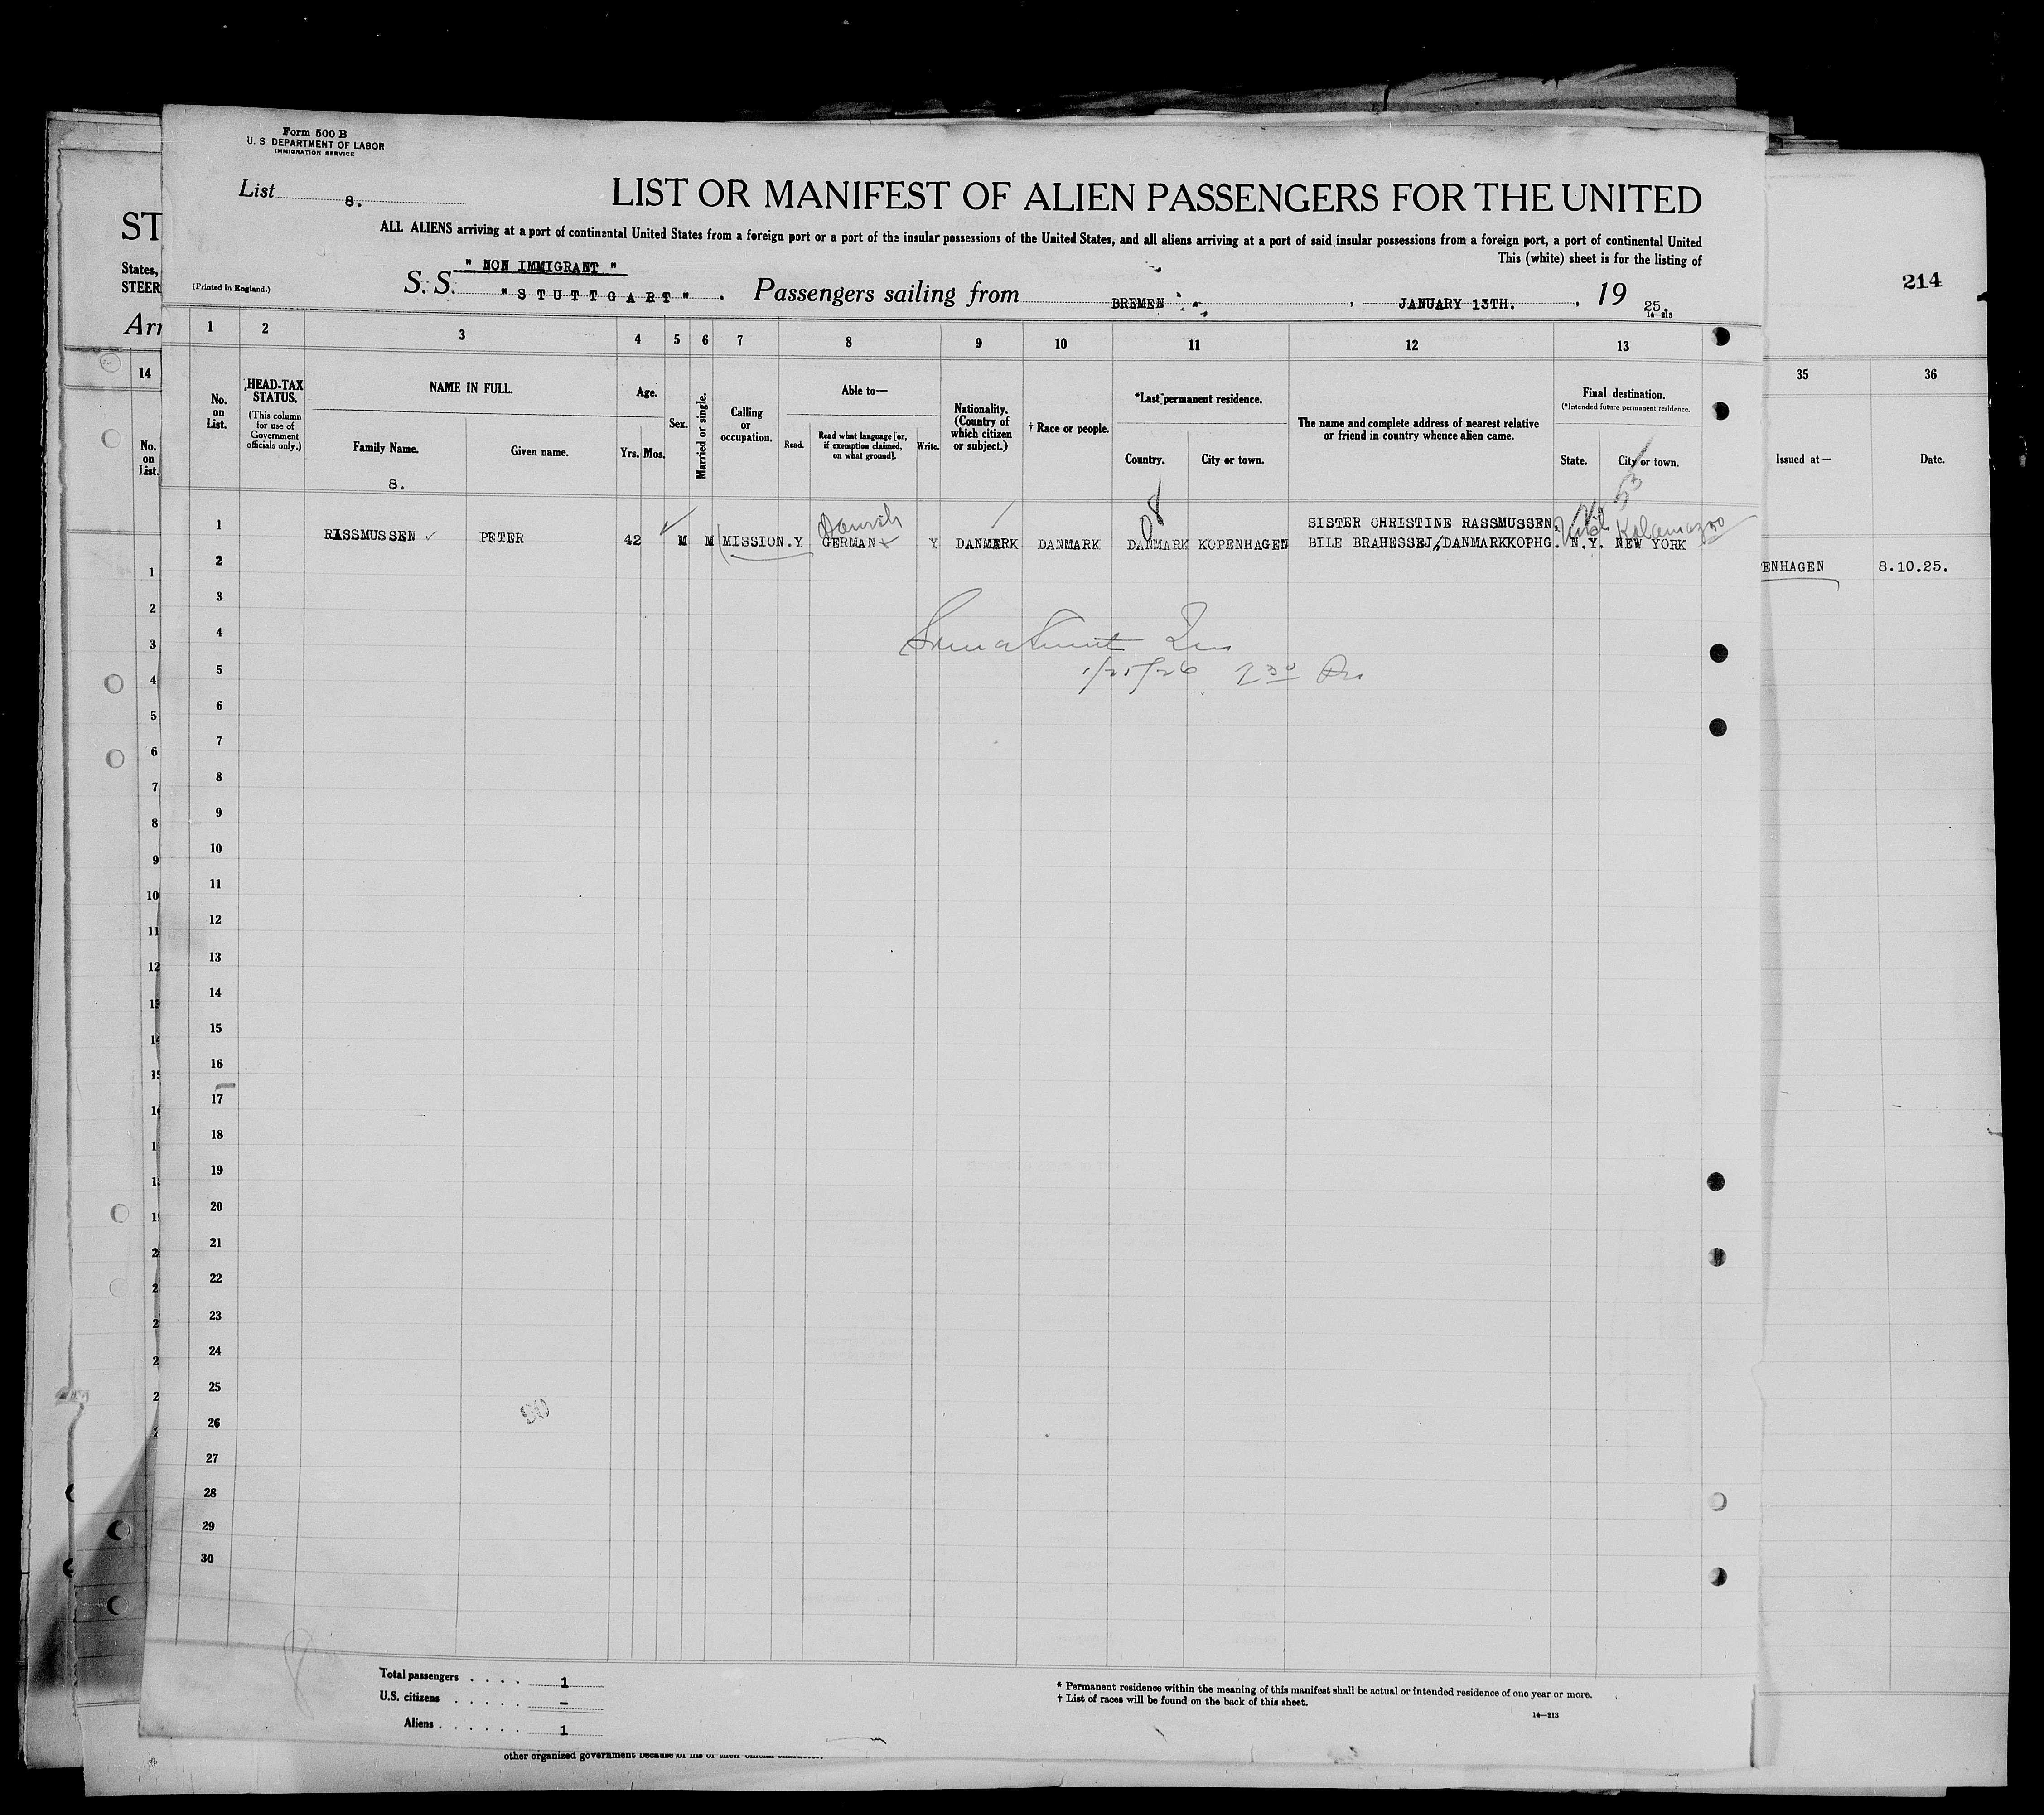 Form 500 B
U. S DEPARTMENT OF LABOR
IMMIGRATION SERVICE
List 8.
LIST OR MANIFEST OF ALIEN PASSENGERS FOR THE UNITED
ALL ALIENS arriving at a port of continental United States from a foreign port or a port of the insular possessions of the United States, and all aliens arriving at a port of said insular possessions from a foreign port, a port of continental United
This (white) sheet is for the listing of
" NON IMMIGRANT "
(Printed in England.)
S. S. " S T U T T G A R T " . Passengers sailing from BREMEN , JANUARY 13TH. , 19 25.
14—213
1 2 3 4 5 6 7 8 9 10 11 12 13
No. on List.
HEAD-TAX STATUS.
(This column for use of Government officials only.)
NAME IN FULL.
Family Name.
Given name.
8.
Age.
Yrs. Mos.
Sex.
Married or single.
Calling or occupation.
Able to—
Read.
Read what language [or, if exemption claimed, on what ground].
Write.
Nationality. (Country of which citizen or subject.)
† Race or people.
*Last permanent residence.
Country.
City or town.
The name and complete address of nearest relative or friend in country whence alien came.
Final destination.
(*Intended future permanent residence.
State.
City or town.
53
Danish
8
SISTER CHRISTINE RASSMUSSEN,
Kalamazoo
1 RASSMUSSEN PETER 42 M M MISSION.Y GERMAN Y DANMARK DANMARK DANMARK KOPENHAGEN BILE BRAHESSEJ, DANMARKKOPHG. N.Y. NEW YORK
2
3
4
5
1/25/26
6
7
8
9
10
11
12
13
14
15
16
17
18
19
20
21
22
23
24
25
26
27
28
29
30
Total passengers . . . . 1
U.S. citizens . . . . . . —
Aliens . . . . . . 1
* Permanent residence within the meaning of this manifest shall be actual or intended residence of one year or more.
† List of races will be found on the back of this sheet.
14—213
other organized government
ST
States,
STEER
Arr
14
No. on List.
1
2
3
4
5
6
7
8
9
10
11
12
214
35 36
Issued at—
Date.
ENHAGEN 8.10.25.